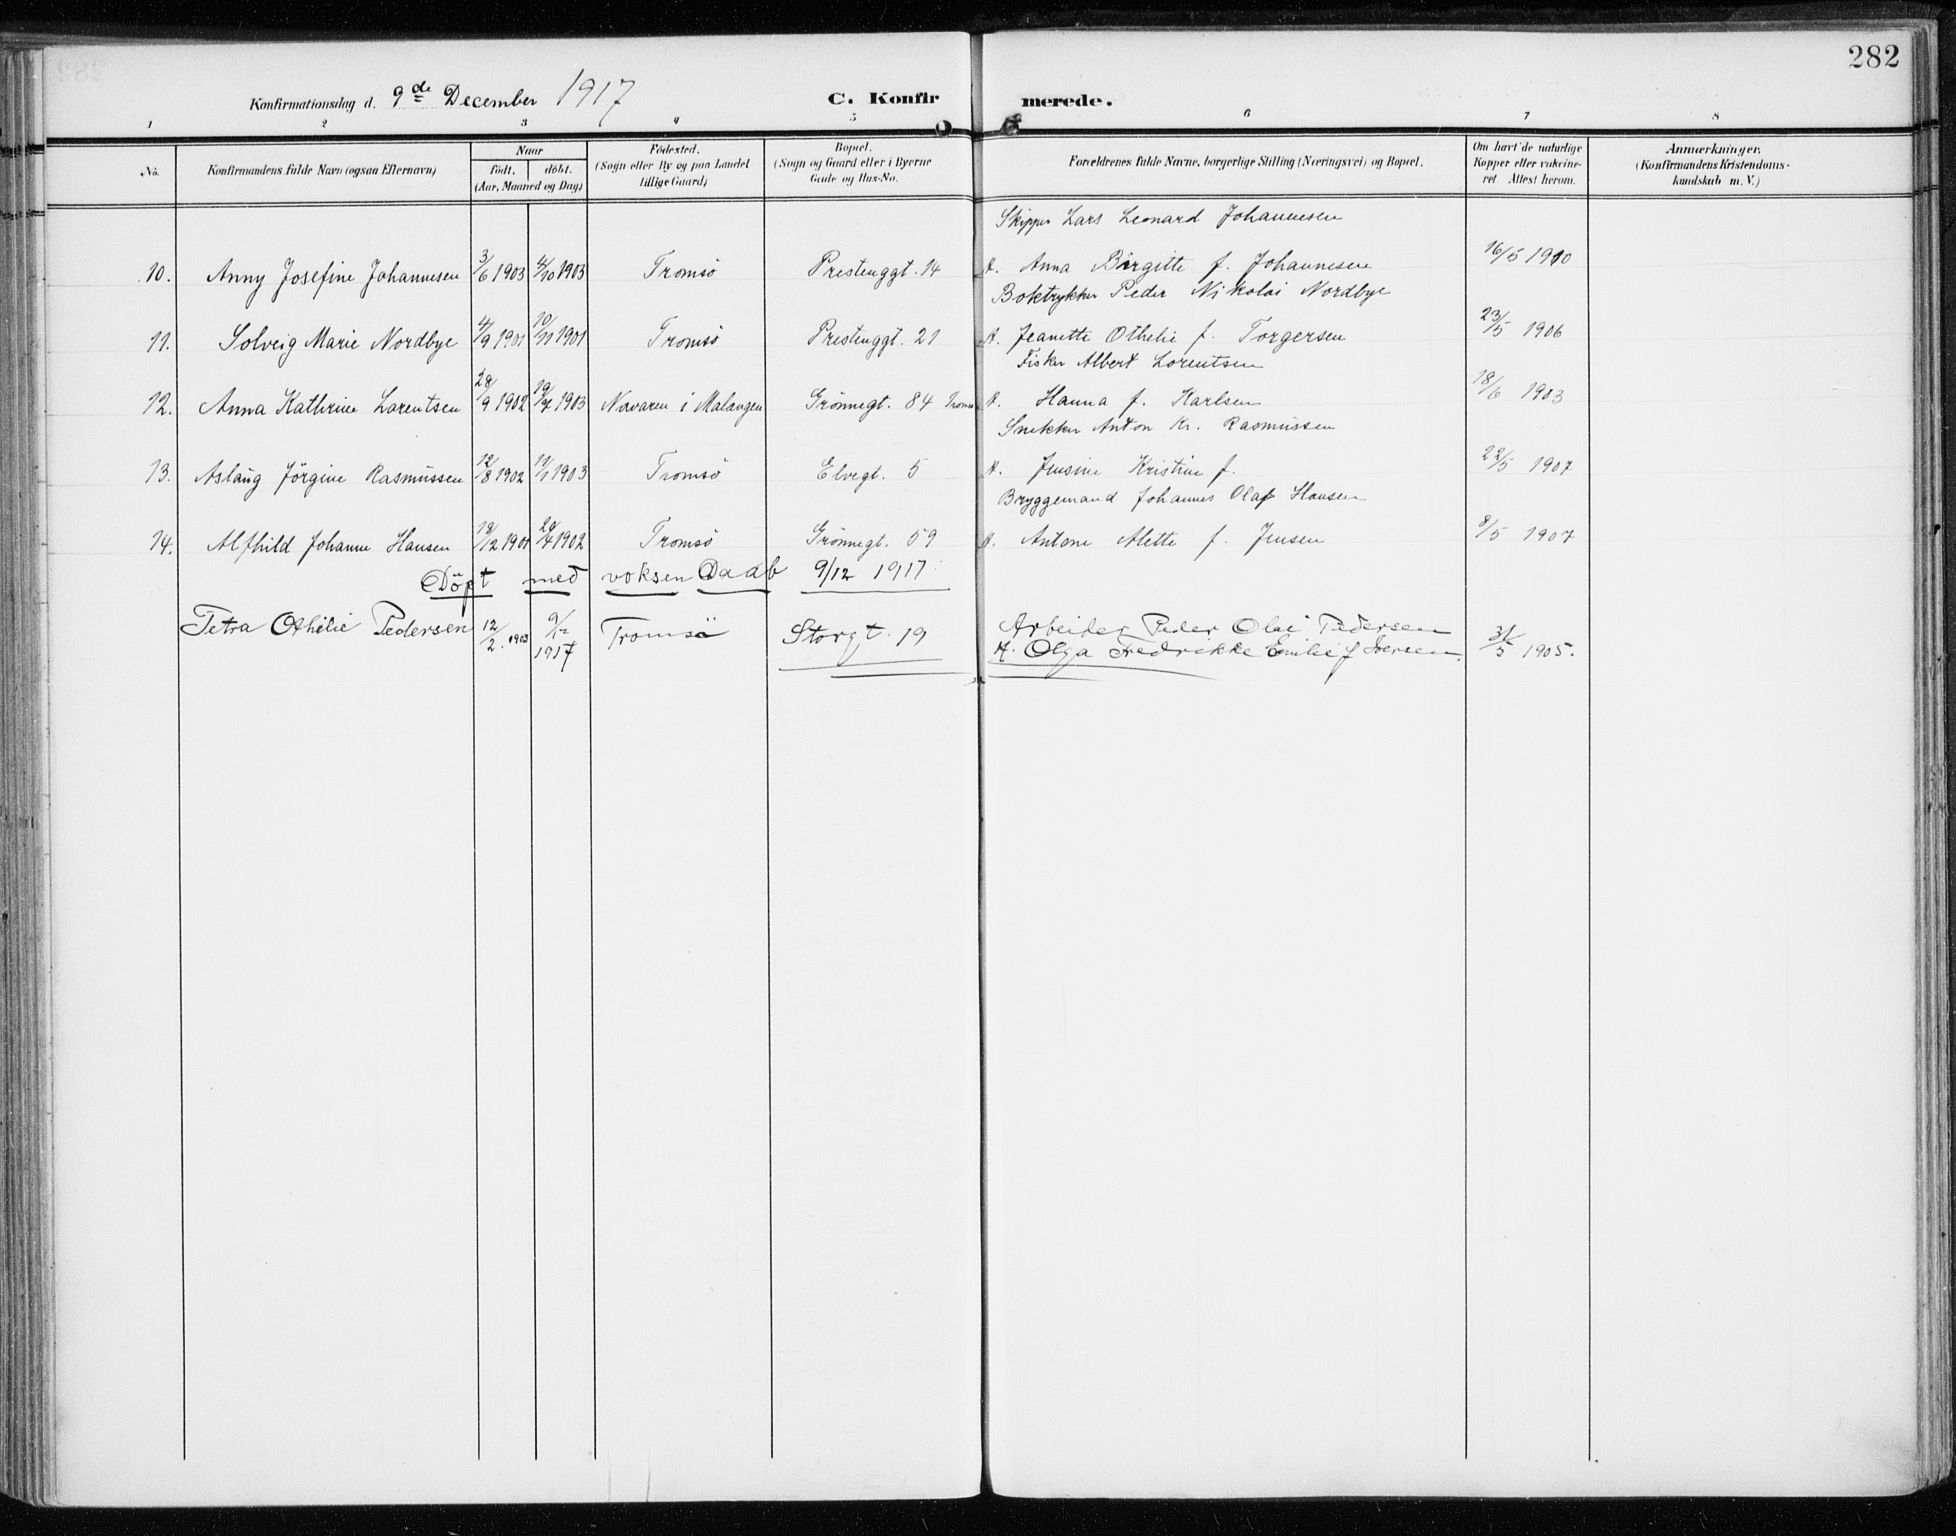 282
Konfirmationsdag d. 9de December 1917 C. Konfirmerede.
1 2 3 4 5 6 7 8
No. Konfirmandens fulde Navn (ogsaa Efternavn) Naar födt. döbt. (Aar, Maaned og Dag) Födested. (Sogn eller By og paa Landet tillige Gaard) Bopæl. (Sogn og Gaard eller i Byerne Gade og Hus-No. Forældrenes fulde Navne, borgerlige Stilling (Næringsvei) og Bopæl. Om havt de naturlige Kopper eller vaksineret Attest herom. Anmærkninger. (Konfirmandens Kristendomskundskab m. V.)
Skipper Lars Leonard Johannesen
10. Anny Josefine Johannesen 3/6 1903 4/10 1903 Tromsö Prestenggt. 14 H. Anna Birgitte f. Johannesen 16/5 1910
Boktrykker Peder Nikolai Nordbye
11. Solveig Marie Nordbye 4/9 1901 10/11 1901 Tromsö Prestenggt. 21 H. Jeanette Othelie f. Torgersen 23/5 1906
Fisker Albert Lorentsen
12. Anna Kathrine Lorentsen 28/9 1902 19/7 1903 Navaren i Malangen Grönnegt. 84 Tromsö H. Hanna f. Karlsen 18/6 1903
Snekker Anton Kr. Rasmussen
13. Aslaug Jörgine Rasmussen 12/8 1902 11/1 1903 Tromsö Elvegt. 5 H. Jensine Kristine f. 22/5 1907
Bryggemand Johannes Olaf Hansen
14. Alfhild Johanne Hansen 12 1901 1902 Tromsö Grönnegt. 59 H. Antone Alette f. Jensen 8/5 1907
Döpt med voksen Daab 9/12 1917
Petra Othelie Pedersen 12/2 1903 9/12 1917 Tromsö Storgt. 19 Arbeider Peder Olai Pedersen
H. Olga Fredrikke Emilie f Iversen. 31/5 1905.